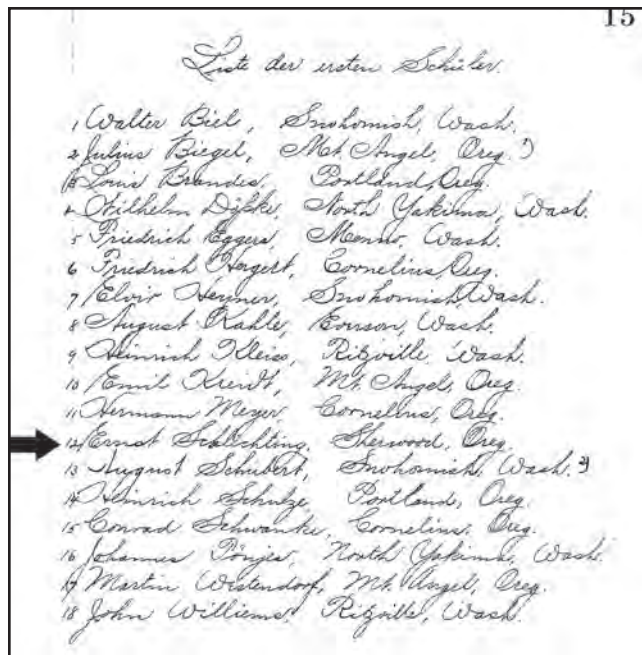 15
Liste der ersten Schüler.
1 Walter Biel, Snohomish, Wash.
2 Julius Biegel, Mt. Angel, Oreg. 1)
3 Louis Brandes, Portland, Oreg.
4 Wilhelm North Yakima, Wash.
5 Friedrich Eggers, Menno, Wash.
6 Friedrich Hergert, Cornelius, Oreg.
7 Snohomish, Wash.
8 August Kahle, Wash.
9 Heinrich Kleiss, Ritzville, Wash.
10 Emil Mt. Angel, Oreg.
11 Hermann Meyer Cornelius, Oreg.
12 Ernst Schlichting, Sherwood, Oreg.
13 August Schubert, Snohomish, Wash. 2)
14 Heinrich Schulze Portland, Oreg.
15 Conrad Schwanke, Cornelius, Oreg.
16 Johannes Tönjes, North Yakima, Wash.
17 Martin Westendorf, Mt. Angel, Oreg.
18 John Williems, Ritzville, Wash.